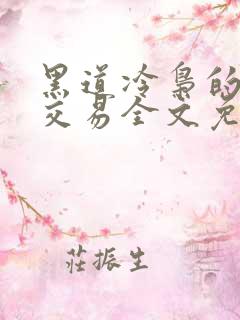 黑道冷梟的
交易全文免
莊振生